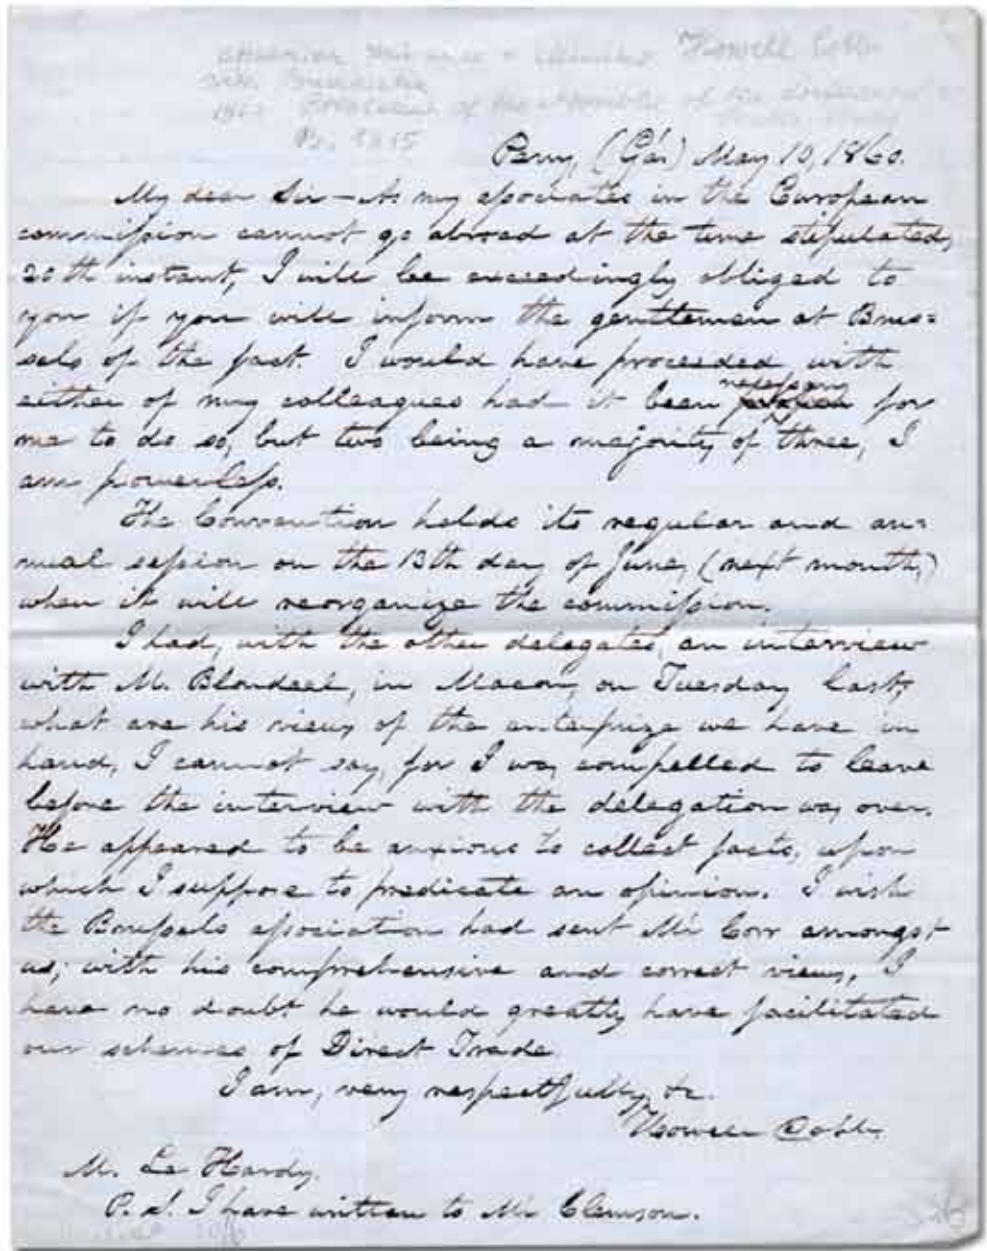 Howell Cobb
1860 President of the
Perry, (Ga.) May 10, 1860.
My dear Sir — As my associates in the European
commission cannot go abroad at the time stipulated,
20th instant, I will be exceedingly obliged to
you if you will inform the gentlemen at Brus=
sels of the fact. I would have proceeded with
necessary
either of my colleagues had it been for
me to do so, but two being a majority of three, I
am powerless.
The Convention holds its regular and an=
nual session on the 13th day of June, (next month,)
when it will reorganize the commission.
I had, with the other delegates, an interview
with M. Blondeel, in Macon, on Tuesday last;
what are his views of the enterprize we have in
hand, I cannot say, for I was compelled to leave
before the interview with the delegation was over.
He appeared to be anxious to collect facts, upon
which I suppose to predicate an opinion. I wish
the Brussels association had sent Mr Corr amongst
us; with his comprehensive and correct views, I
have no doubt he would greatly have facilitated
our schemes of Direct Trade.
I am, very respectfully, &c.
Howell Cobb.
M. Le Hardy.
P. S. I have written to Mr Clemson.